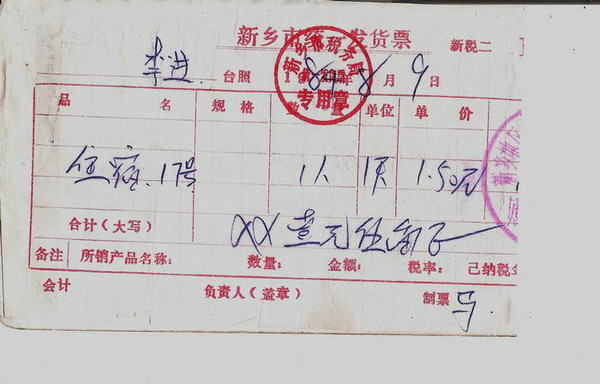 新乡市统一发货票 新税二
李进 台照 1984年8月9日
新乡市税务局
专用章
品名 规格 数量 单位 单价
住宿.17号 1人 1天 1.50元
合计（大写） XX壹元伍角正
备注 所销产品名称： 数量： 金额： 税率： 己纳税金
会计 负责人（盖章） 制票 马